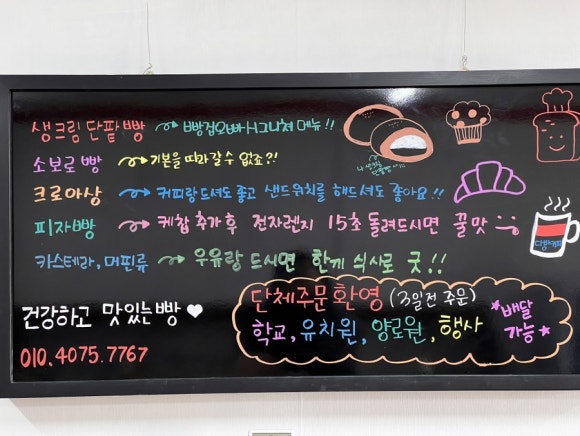 생크림 단팥빵 빵겁오빠 시그니쳐 메뉴!!
소보로빵 기본을 따라갈수 없죠?!
크로아상 커피랑드셔도 좋고 샌드위치를 해드셔도 좋아요!!
피자빵 케찹추가후 전자렌지 15초 돌려드시면 꿀맛
카스테라, 머핀류 우유랑 드시면 한끼 식사로 굿!!
건강하고 맛있는빵
010.4075.7767
단체주문환영 (3일전 주문)
학교, 유치원, 양로원, 행사
배달
가능